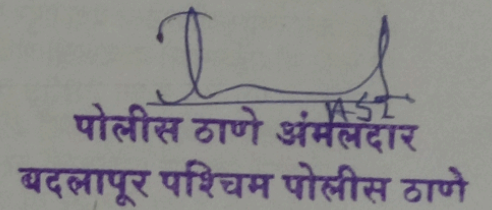 ASI
पोलीस ठाणे अंमलदार
बदलापूर पश्चिम पोलीस ठाणे